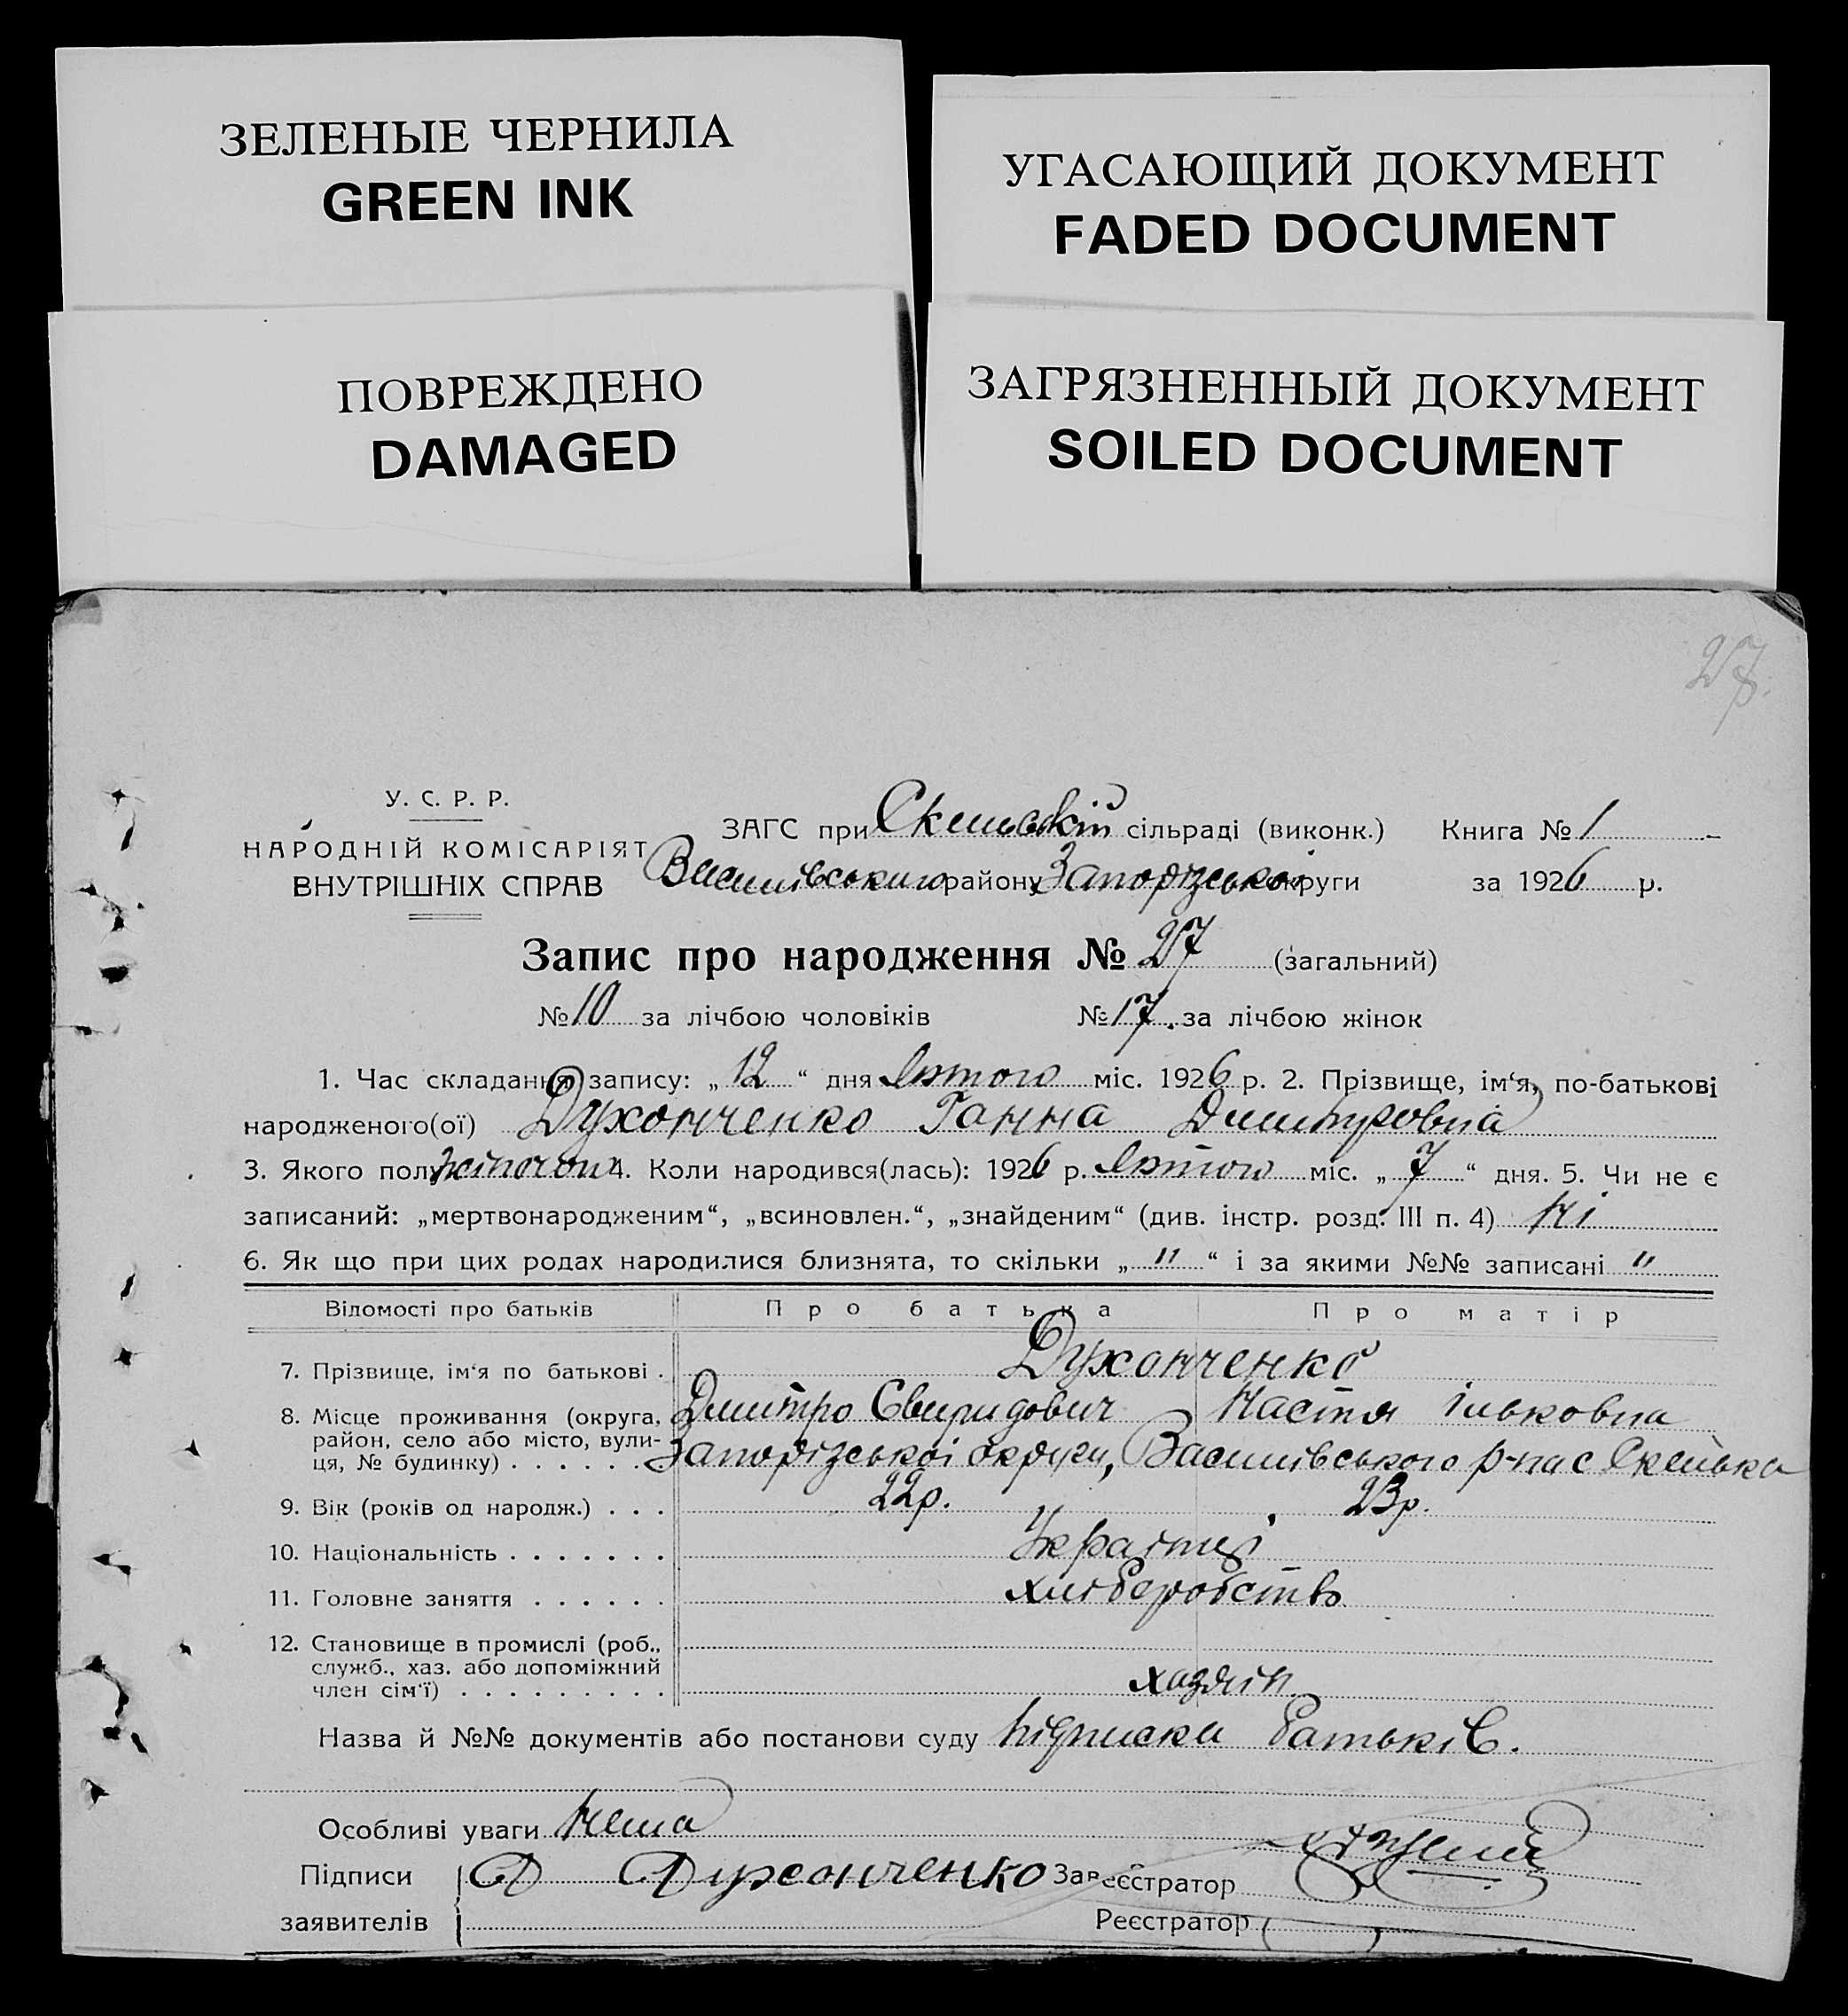 ЗЕЛЕНЫЕ ЧЕРНИЛА
GREEN INK
УГАСАЮЩИЙ ДОКУМЕНТ
FADED DOCUMENT
ПОВРЕЖДЕНО
DAMAGED
ЗАГРЯЗНЕННЫЙ ДОКУМЕНТ
SOILED DOCUMENT
27.
У. С. Р. Р.
НАРОДНІЙ КОМІСАРІЯТ
ВНУТРІШНІХ СПРАВ
ЗАГС при Скельській сільраді (виконк.) Книга № 1
Василівського району Запорізської округи за 1926 р.
Запис про народження № 27 (загальний)
№ 10 за лічбою чоловіків № 17. за лічбою жінок
1. Час складання запису: „ 12 “ дня лютого міс. 1926 р. 2. Прізвище, ім‘я, по-батькові
народженого(ої) Духонченко Ганна Дмитровна
3. Якого полу жіночого 4. Коли народився(лась): 1926 р. лютого міс. „ 7 “ дня. 5. Чи не є
записаний: „мертвонародженим“, „всиновлен.“, „знайденим“ (див. інстр. розд. III п. 4) Ні
6. Як що при цих родах народилися близнята, то скільки „ " “ і за якими №№ записані "
Відомості про батьків Про батька Про матір
7. Прізвище, ім‘я по батькові . Духонченко
Дмитро Свиридович Настя Ільковна
8. Місце проживання (округа, район, село або місто, вули-
ця, № будинку) . . . . . . . Запорізської округи, Василівського р-на с Скелька
9. Вік (років од народж.) . . . 22р. 23р.
10. Національність . . . . . . . Українці
11. Головне заняття . . . . . . хліборобство
12. Становище в промислі (роб.,
служб., хаз. або допоміжний
член сім‘ї) . . . . . . . . . хазяїн
Назва й №№ документів або постанови суду підписка батьків.
Особливі уваги Нема
Підписи Д Духонченко Зав. Реєстратор
заявителів Реєстратор